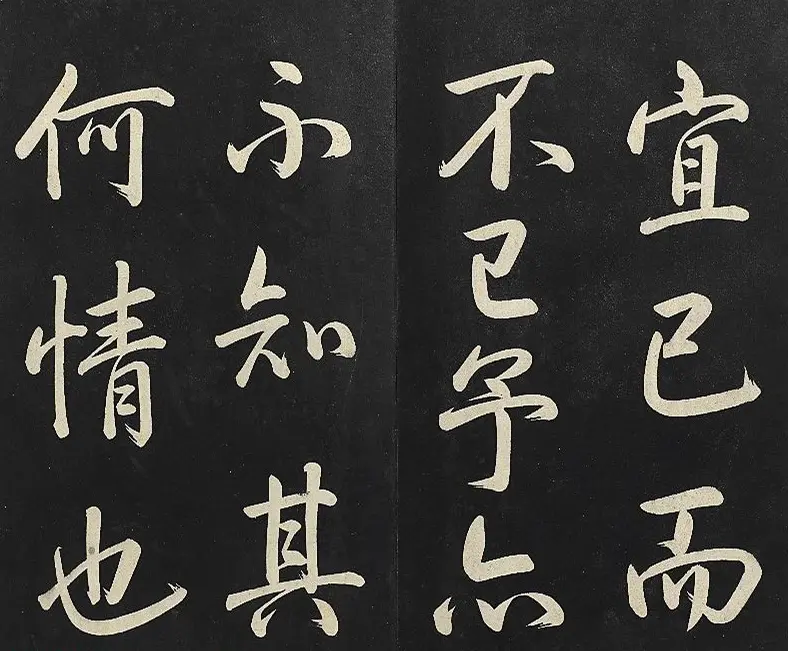 宜已而
不已予亦
不知其
何情也